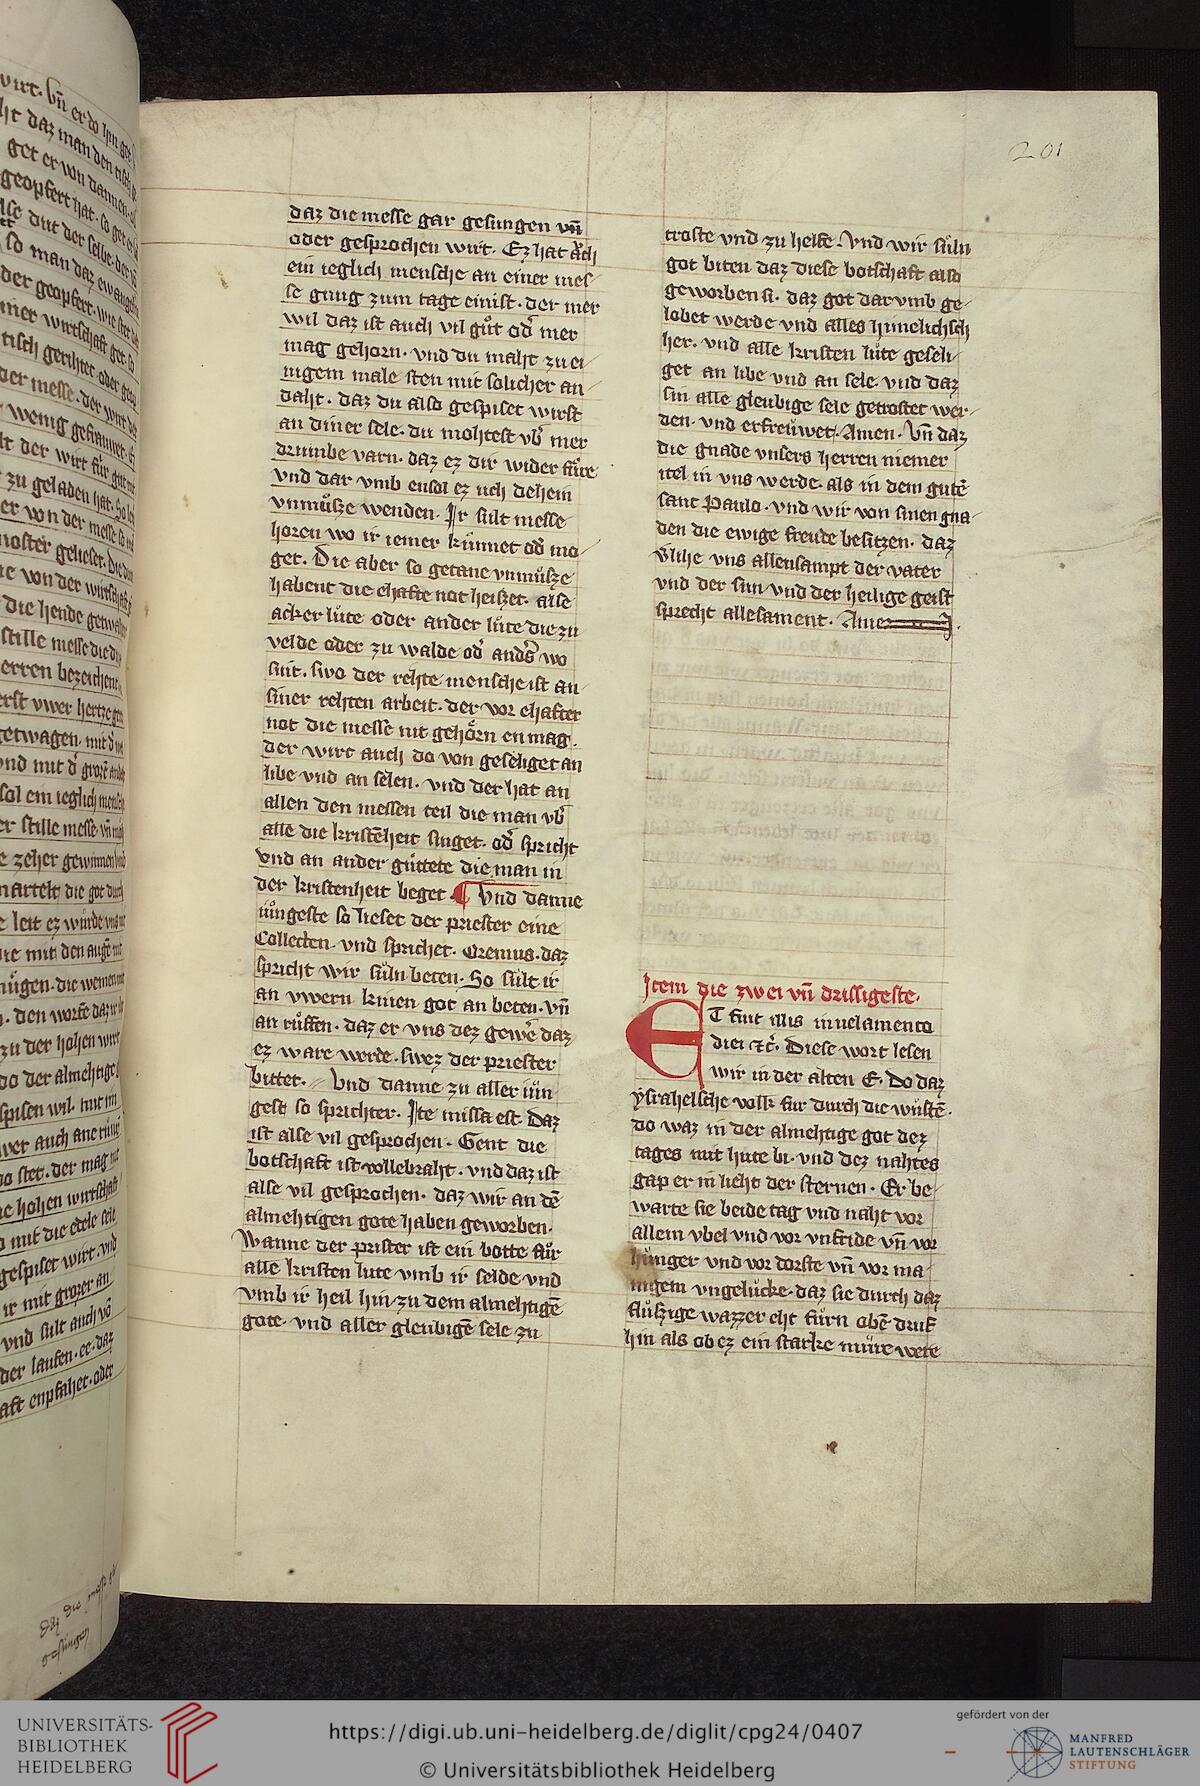 201
daz die messe gar gesungen vn̄
oder gesprochen wirt. Ez hat aͮch
ein ieglich mensche an einer mes-
se gnug zum tage einist. der mer
wil daz ist auch vil guͦt od̾ mer
mag gehorn. vnd du maht zu ei-
nigem male sten mit solicher an-
daht. daz du also gespiset wirst
an diner sele. du mohtest vb̾ mer
drumbe varn. daz ez dir wider fuͤre
vnd dar vmb ensol ez uch dehein
vnmuͦsze wenden. Ir sult messe
horen wo ir iemer kuͤnnet od̾ mo-
get. Die aber so getane vnmuͦsze
habent die ehafte not heiszet. alse
acker luͤte oder ander luͤte die zu
velde oder zu walde od̾ ands̾ wo
sint. swo der rehte mensche ist an
siner rehten arbeit. der vor ehafter
not die messe nit gehoͤrn en mag.
der wirt auch do von geseliget an
libe vnd an selen. vnd der hat an
allen den messen teil die man vb̾
alle die kristēheit singet. od̾ spricht
vnd an ander guttete die man in
der kristenheit beget. ¶ Vnd danne
iuͤngeste so lieset der priester eine
Collecten. vnd sprichet. Oremus. daz
spricht wir suͤln beten. So sult ir
an vwern knien got an beten. vn̄
an ruͤffen. daz er vns dez gewe̾ daz
ez ware werde. swez der priester
bittet. Vnd danne zu aller iuͤn
gest so sprichter. Ite missa est. Daz
ist alse vil gesprochen. Gent die
botschaft ist vollebraht. vnd daz ist
alse vil gesprochen. daz wir an dē
almehtigen gote haben geworben.
Wanne der prister ist ein botte fuͤr
alle kristen lute vmb ir selde vnd
vmb ir heil hin zu dem almehtigē
gote. vnd aller gleubigē sele zu
troste vnd zu helfe. Vnd wir suͤln
got biten daz diese botschaft also
geworben si. daz got dar vmb ge-
lobet werde vnd alles himelichsch
her. vnd alle kristen luͤte geseli-
get an libe vnd an sele. vnd daz
sin alle gleubige sele getrostet wer-
den. vnd erfreuͤwet. Amen. Vn̄ daz
die gnade vnsers herren niemer
itel in vns werde. als in dem gutē
sant Paulo. vnd wir von sinen gna-
den die ewige freude besitzen. daz
v̾lihe vns allensampt der vater
vnd der sun vnd der heilige geist
sprecht allesament. Amen.
Item die zwei vn̄ drissigeste.
ET fuit illis in uelamento
diei ⁊c̄. Diese wort lesen
wir in der alten E. Do daz
ysrahelsche volk fur durch die wuͤstē.
do waz in der almehtige got dez
tages mit hute bi. vnd dez nahtes
gap er in lieht der sternen. Er be-
warte sie beide tag vnd naht vor
allem vbel vnd vor vnfride vn̄ vor
hunger vnd vor dorste vn̄ vor ma-
nigem vngeluͤcke. daz sie durch daz
fluͤszige wazzer eht fuͤrn obē druf
hin als ob ez ein starke mure were
daz die messe gar
gesungen
UNIVERSITÄTS-
BIBLIOTHEK
HEIDELBERG
https://digi.ub.uni-heidelberg.de/diglit/cpg24/0407
© Universitätsbibliothek Heidelberg
gefördert von der
MANFRED
LAUTENSCHLÄGER
STIFTUNG